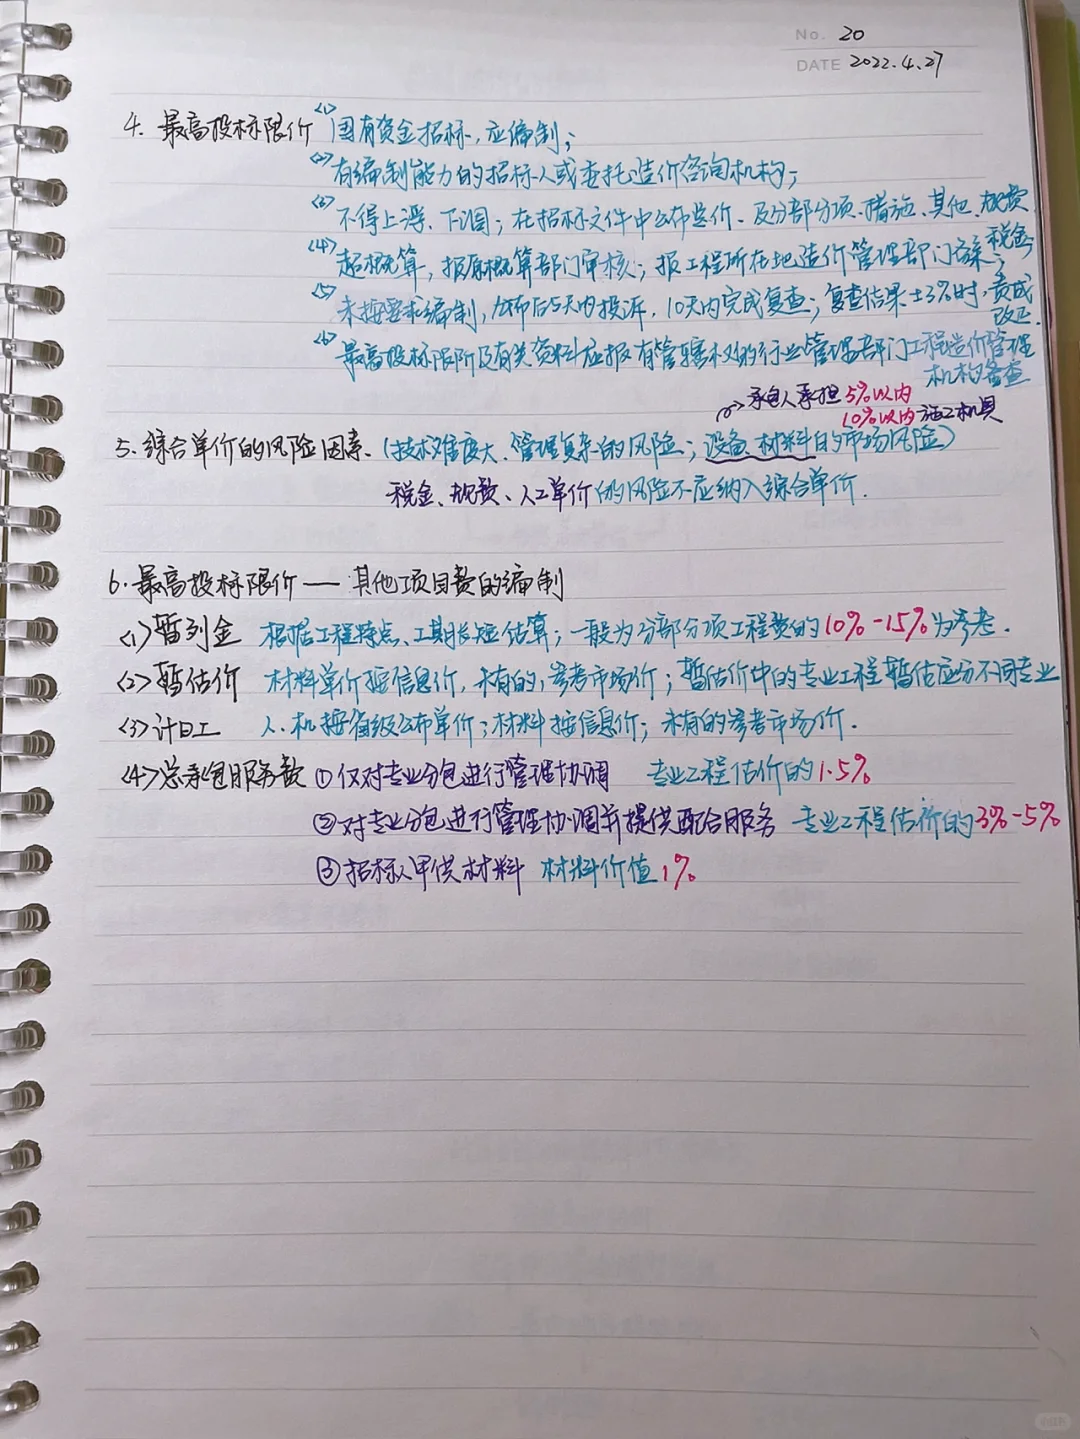 No. 20
DATE 2022.4.27
4. 最高投标限价 <1> 国有资金招标,应编制;
<2> 有编制能力的招标人或委托造价咨询机构;
<3> 不得上浮、下调;在招标文件中公布总价、及分部分项、措施、其他、规费
税金;
<4> 超概算,报原概算部门审核;报工程所在地造价管理部门备案
<5> 未按要求编制,公布后5天内投诉,10天内完成复查;复查结果±3%时,责成
改正.
<6> 最高投标限价及有关资料应报有管辖权的行业管理部门工程造价管理
机构备查
→承包人承担 5%以内
10%以内 施工机具
5. 综合单价的风险因素.(技术难度大、管理复杂的风险;设备、材料的市场风险)
税金、规费、人工单价的风险不应纳入综合单价.
6. 最高投标限价——其他项目费的编制
<1> 暂列金 根据工程特点、工期长短估算;一般为分部分项工程费的10%-15%为参考.
<2> 暂估价 材料单价按信息价,未有的,参考市场价;暂估价中的专业工程暂估应分不同专业
<3> 计日工 人.机按省级公布单价;材料按信息价;未有的参考市场价.
<4> 总承包服务费 ①仅对专业分包进行管理协调 专业工程估价的1.5%
②对专业分包进行管理协调并提供配合服务 专业工程估价的3%-5%
③招标人甲供材料 材料价值1%